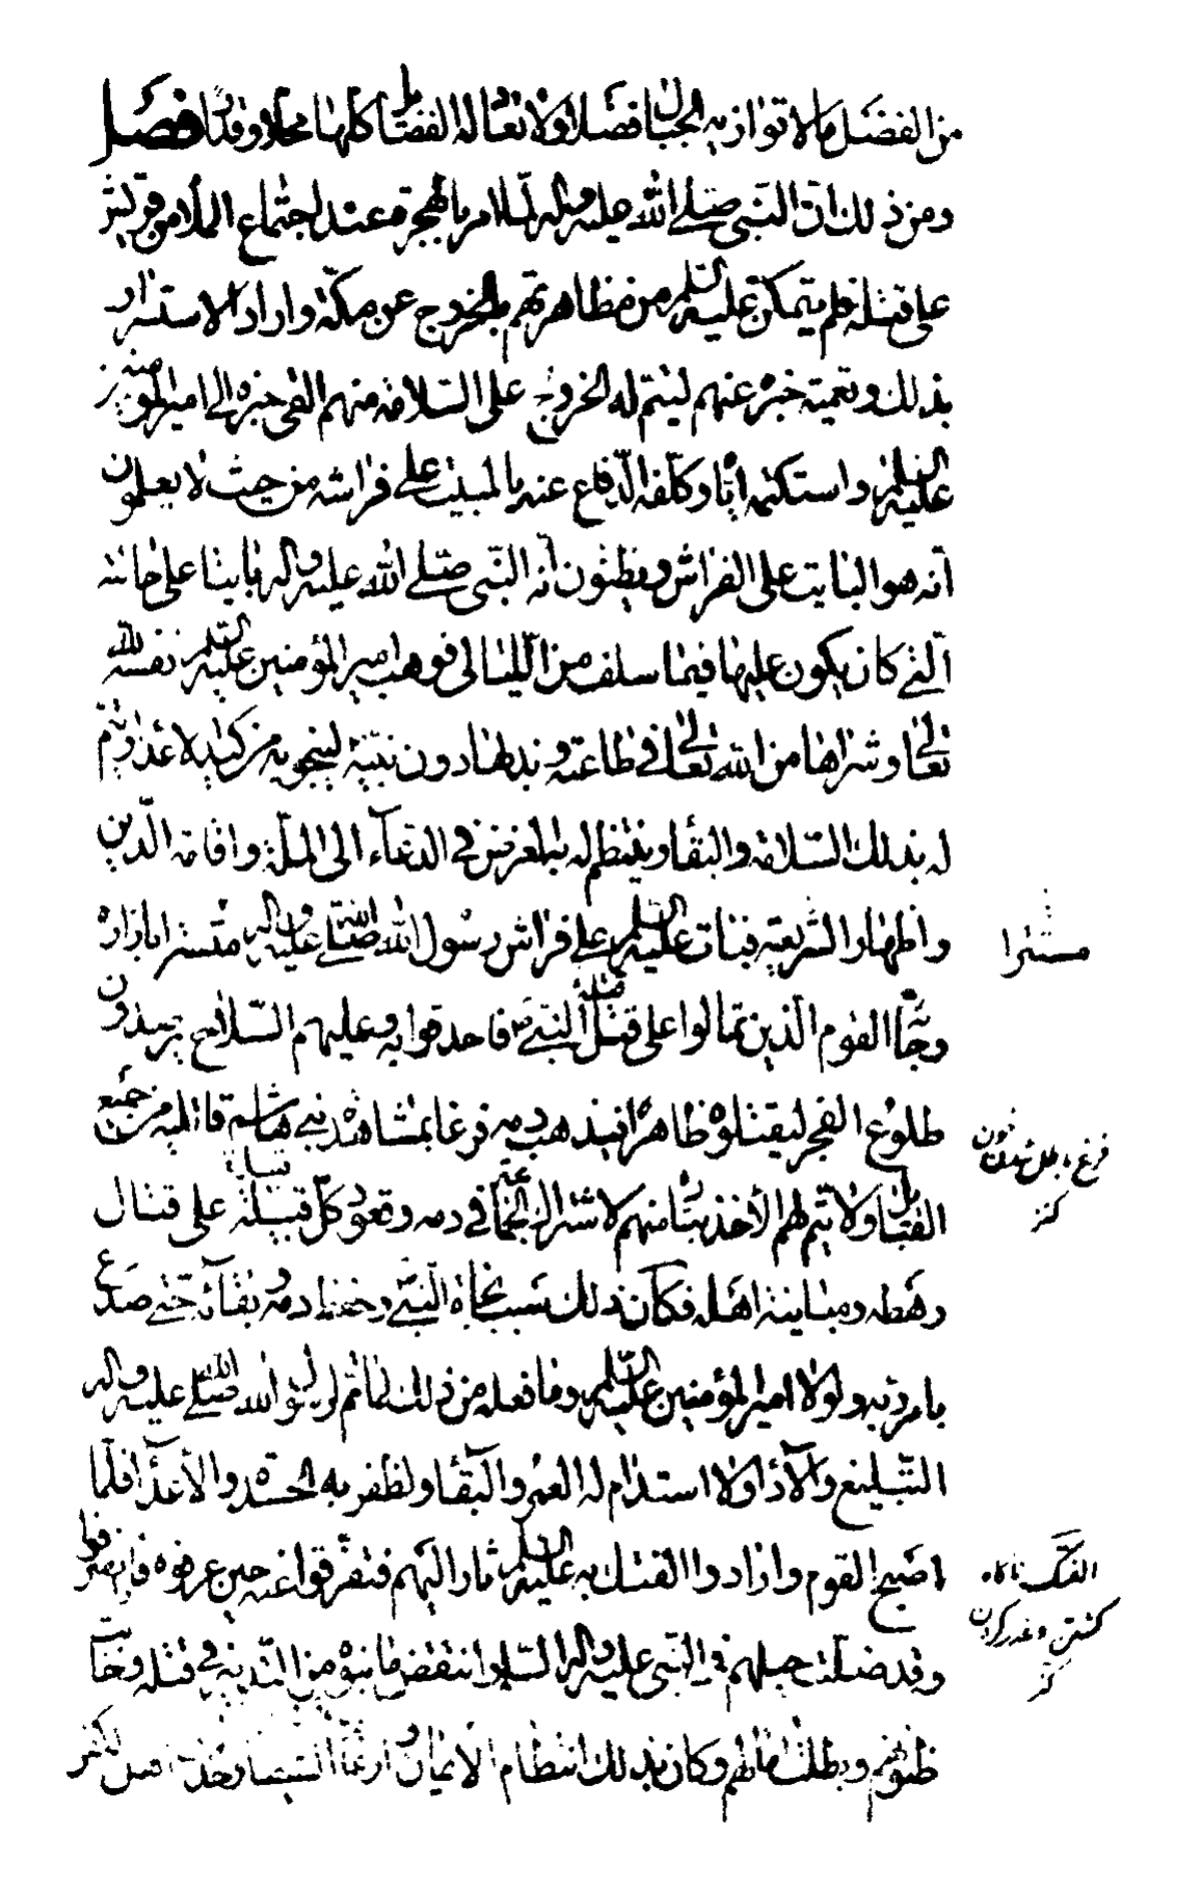 من الفضل ما لا توازن به الجبال فضلا ولا تعادله الفضائل كلها محلا وقدرا فصل
ومن ذلك ان النبي صلى الله عليه وآله لما امر بالهجرة عند اجتماع الملأ من قريش
على قتله فلم يتمكن عليه السلم من مظاهرتهم بالخروج عن مكة واراد الاستسرار
بذلك وتعمية خبره عنهم ليتم له الخروج على السلامة منهم القى خبره الى امير المؤمنين
عليه السلم واستكتمه اياه وكلفه الدفاع عنه بالمبيت على فراشه من حيث لا يعلمون
انه هو البايت على الفراش ويظنون انه النبي صلى الله عليه وآله بايتا على حالته
التي كان يكون عليها فيما سلف من الليالي فوهب امير المؤمنين عليه السلم نفسه لله
تعالى وشراها من الله تعالى في طاعته وبذلها دون نبيه لينجو به من كيد الاعداء ويتم
له بذلك السلامة والبقاء وينتظم له به الغرض في الدعاء الى الملة واقامة الدين
واظهار الشريعة فبات عليه السلم على فراش رسول الله صلى الله عليه وآله متسترا بازاره
مستترا
وجاءه القوم الذين تمالوا على قتل النبي ص فاحدقوا به وعليهم السلاح يرصدون
طلوع الفجر ليقتلوه ظاهرا فيذهب دمه فرغا بمشاهدة بني هاشم قاتليه من جميع
فرغ باطل شدن خون
كنز
القبائل ولا يتم لهم الأخذ بثاره منهم لاشتراك الجماعة في دمه وقعود كل قبيلة على قتال
رهطه ومباينة اهله فكان ذلك سبب نجاة النبي ص وحفظ دمه وبقائه حتى صدع
بامر ربه ولولا امير المؤمنين عليه السلم وما فعله من ذلك لما تم لرسول الله صلى الله عليه وآله
التبليغ والأداء ولا استدام له العمر والبقاء ولظفر به الحسدة والأعداء فلما
اصبح القوم وارادوا الفتك به عليه السلم ثار اليهم فتفرقوا عنه حين عرفوه فانصرفوا
الفتك ناكاه
كشتن وغدر كردن
كنز
وقد ضلت حيلهم في النبي عليه وآله السلام وانتقض ما بنوه من التدبير في قتله وخابت
ظنونهم وبطلت امالهم وكان بذلك انتظام الايمان وارغام الشيطان وخذلان اهل الكفر